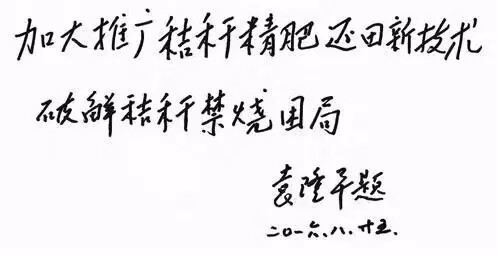 加大推广秸秆精肥还田新技术
破解秸秆禁烧困局
袁隆平题
二〇一六.八.廿五.